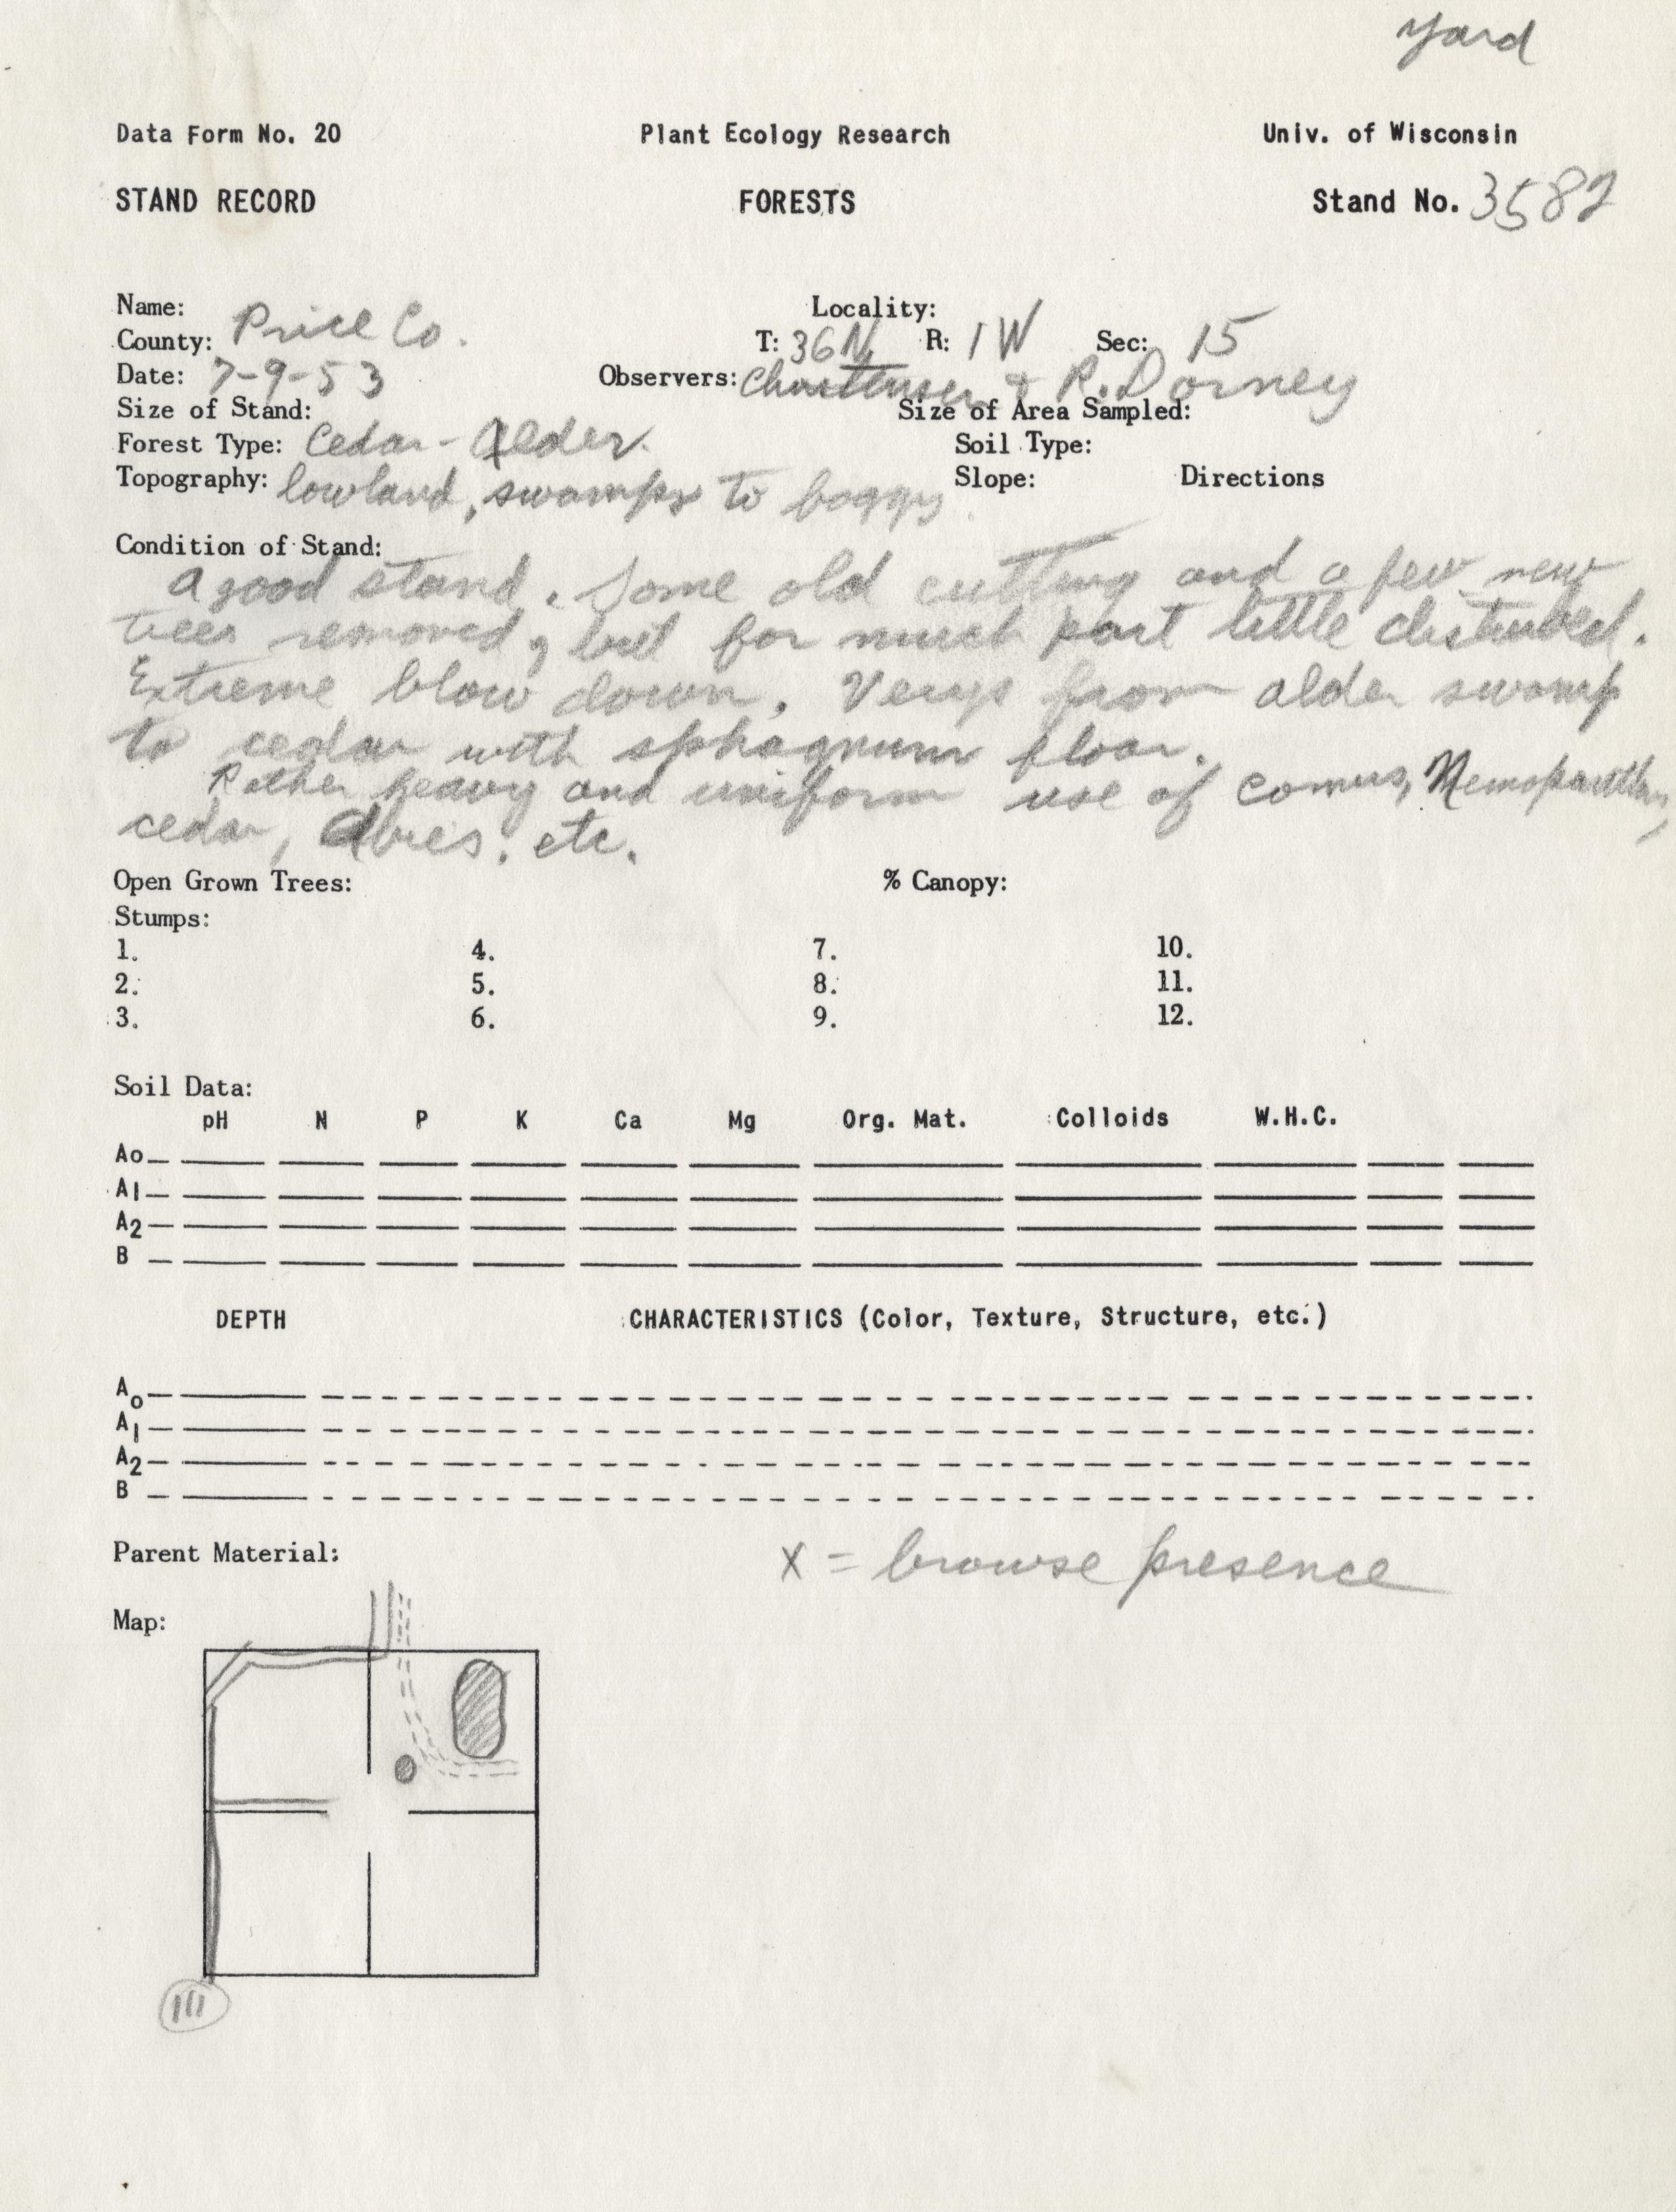 Yard
Data Form No. 20 Plant Ecology Research Univ. of Wisconsin
STAND RECORD FORESTS Stand No. 3582
Name: Locality:
County: Price Co. T: 36N R: 1W Sec: 15
Date: 7-9-53 Observers: Christensen & R. Dorney
Size of Stand: Size of Area Sampled:
Forest Type: Cedar-Alder. Soil Type:
Topography: lowland, swampy to boggy Slope: Directions
Condition of Stand:
A good stand. Some old cutting and a few new
trees removed, but for much part little disturbed.
Extreme blow down. Verys from alder swamp
to cedar with sphagnum floor.
Rather heavy and uniform use of cornus, Nemopanthus,
cedar, Abies. etc.
Open Grown Trees: % Canopy:
Stumps:
1. 4. 7. 10.
2. 5. 8. 11.
3. 6. 9. 12.
Soil Data:
pH N P K Ca Mg Org. Mat. Colloids W.H.C.
Ao
A1
A2
B
DEPTH CHARACTERISTICS (Color, Texture, Structure, etc.)
Ao
A1
A2
B
Parent Material: x = browse presence
Map:
III